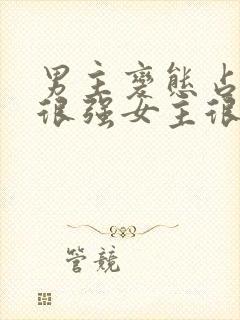 男主變態占
很强女主很
管競